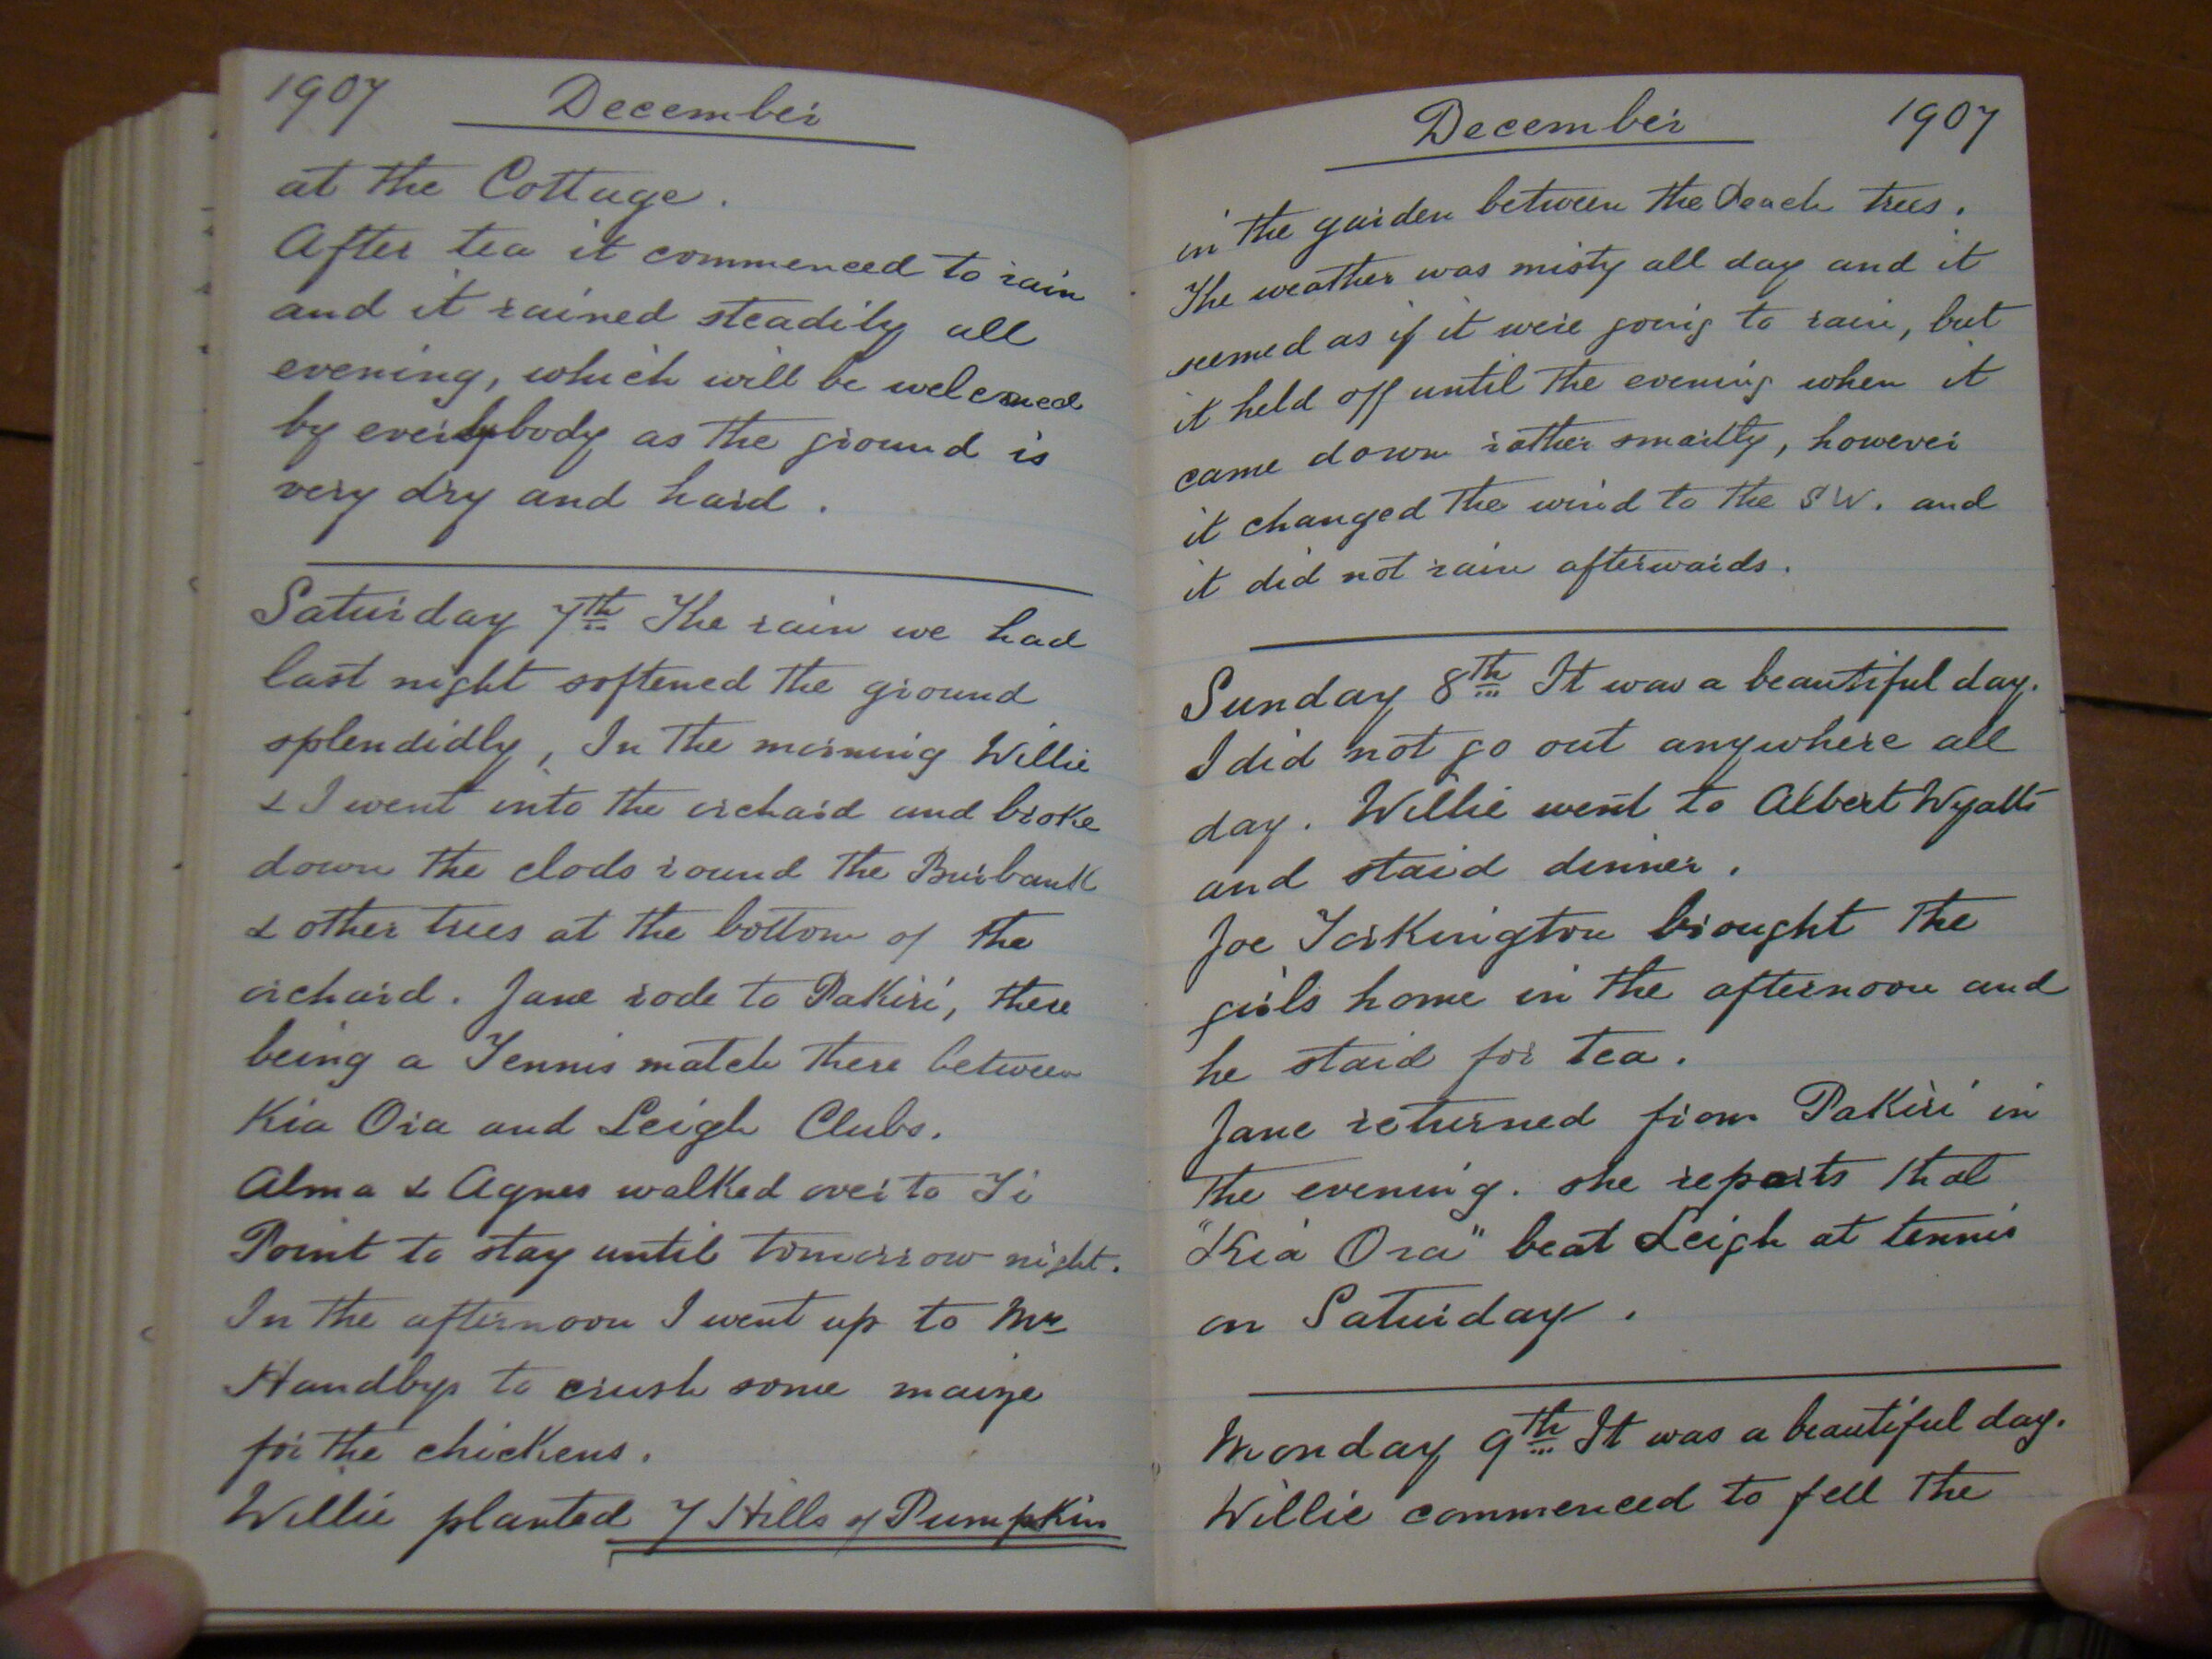 1907 December
at the Cottage.
After tea it commenced to rain
and it rained steadily all
evening, which will be welcomed
by everybody as the ground is
very dry and hard.
Saturday 7th The rain we had
last night softened the ground
splendidly, In the morning Willie
& I went into the orchard and broke
down the clods round the Burbank
& other trees at the bottom of the
orchard. Jane rode to Pakiri, there
being a Tennis match there between
Kia Ora and Leigh Clubs.
Alma & Agnes walked over to Ti
Point to stay until tomorrow night.
In the afternoon I went up to Mr
Handbys to crush some maize
for the chickens.
Willie planted 7 Hills of Pumpkin
December 1907
in the garden between the Peach trees.
The weather was misty all day and it
seemed as if it were going to rain, but
it held off until the evening when it
came down rather smartly, however
it changed the wind to the SW. and
it did not rain afterwards.
Sunday 8th It was a beautiful day.
I did not go out anywhere all
day. Willie went to Albert Wyatts
and staid dinner.
Joe Torkington brought the
girls home in the afternoon and
he staid for tea.
Jane returned from Pakiri in
the evening. she reports that
"Kia Ora" beat Leigh at tennis
on Saturday.
Monday 9th It was a beautiful day.
Willie commenced to fell the